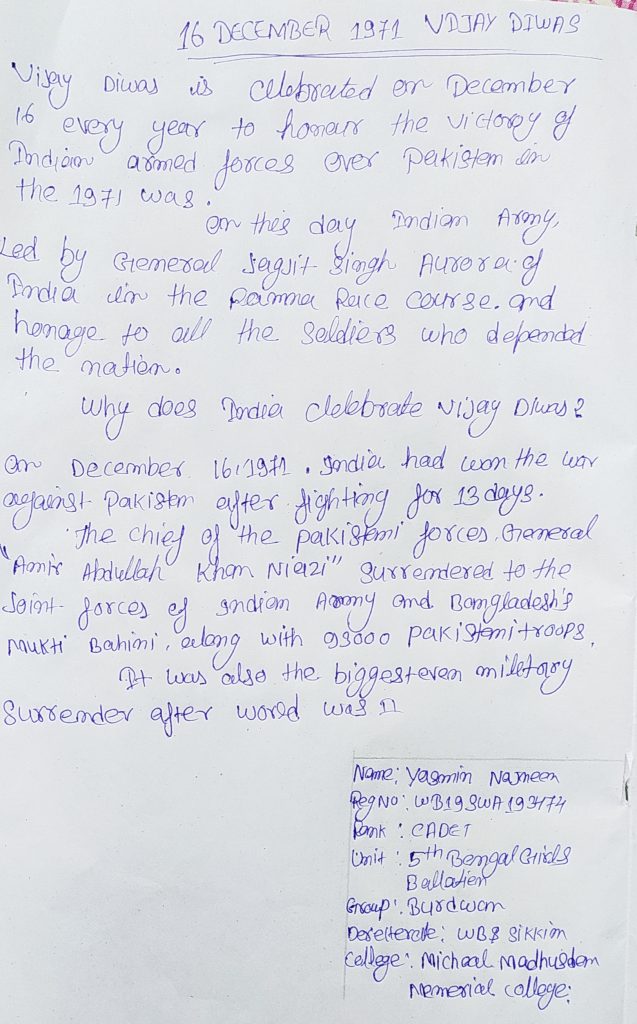 16 DECEMBER 1971 VIJAY DIWAS
Vijay Diwas is celebrated on December
16 every year to honour the victory of
Indian armed forces over Pakistan in
the 1971 was.
on this day Indian Army,
Led by General Jagjit Singh Aurora of
India in the Ramna Race course. and
homage to all the soldiers who depended
the nation.
why does India clelebrate Vijay Diwas?
On December 16, 1971. India had won the war
against Pakistan after fighting for 13 days.
The chief of the pakistani forces, General
"Amir Abdullah Khan Niazi" surrendered to the
Joint forces of Indian Army and Bangladesh's
Mukti Bahini, along with 93000 pakistani troops.
It was also the biggest even military
Surrender after world was II
Name: Yasmin Nasneen
Reg No: WB19SWA193474
Rank: CADET
Unit: 5th Bengal Girls
Ballatien
Group: Burdwan
Derecterate: WB & Sikkim
College: Michael Madhusdan
Memorial college.